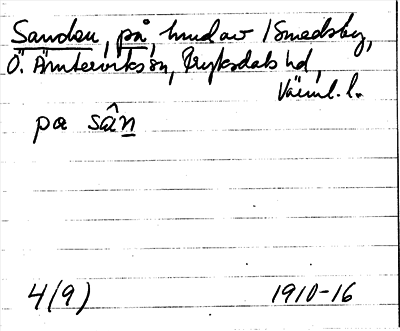 Sanden, på, hmd av 1 Smedsby,
Ö. Ämterviks sn, Fryksdals hd,
Värml. l.
pɑ sân
4(9) 1910-16